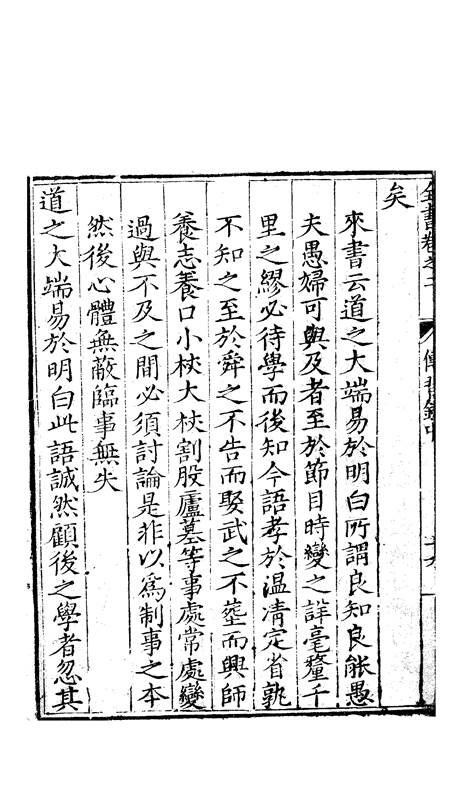 全書卷之二 傳習錄中
矣
來書云道之大端易於明白所謂良知良能愚
夫愚婦可與及者至於節目時變之詳毫釐千
里之繆必待學而後知今語孝於温凊定省孰
不知之至於舜之不告而娶武之不葬而興師
養志養口小杖大杖割股廬墓等事處常處變
過與不及之間必須討論是非以爲制事之本
然後心體無蔽臨事無失
道之大端易於明白此語誠然顧後之學者忽其